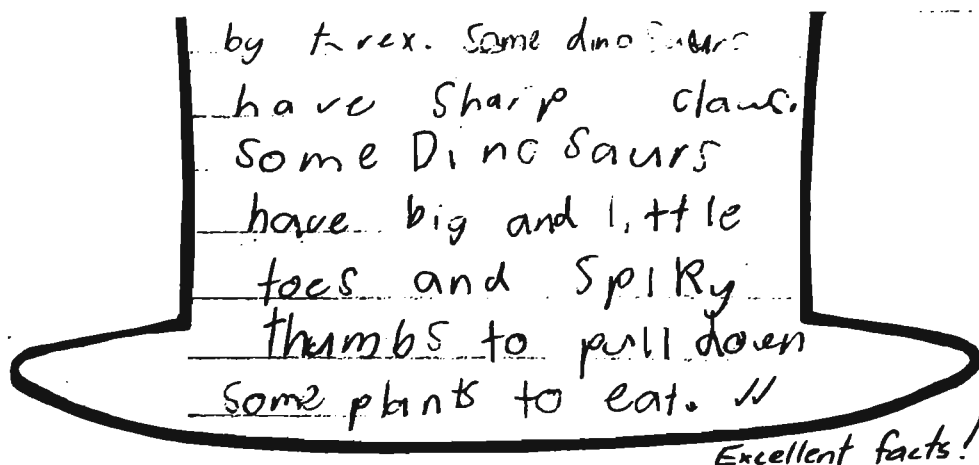 by t-rex. Some dinosaurs
have Sharp claws.
Some DinoSaurs
have big and little
toes and SpiKy
thumbs to pull down
some plants to eat.
Excellent facts!